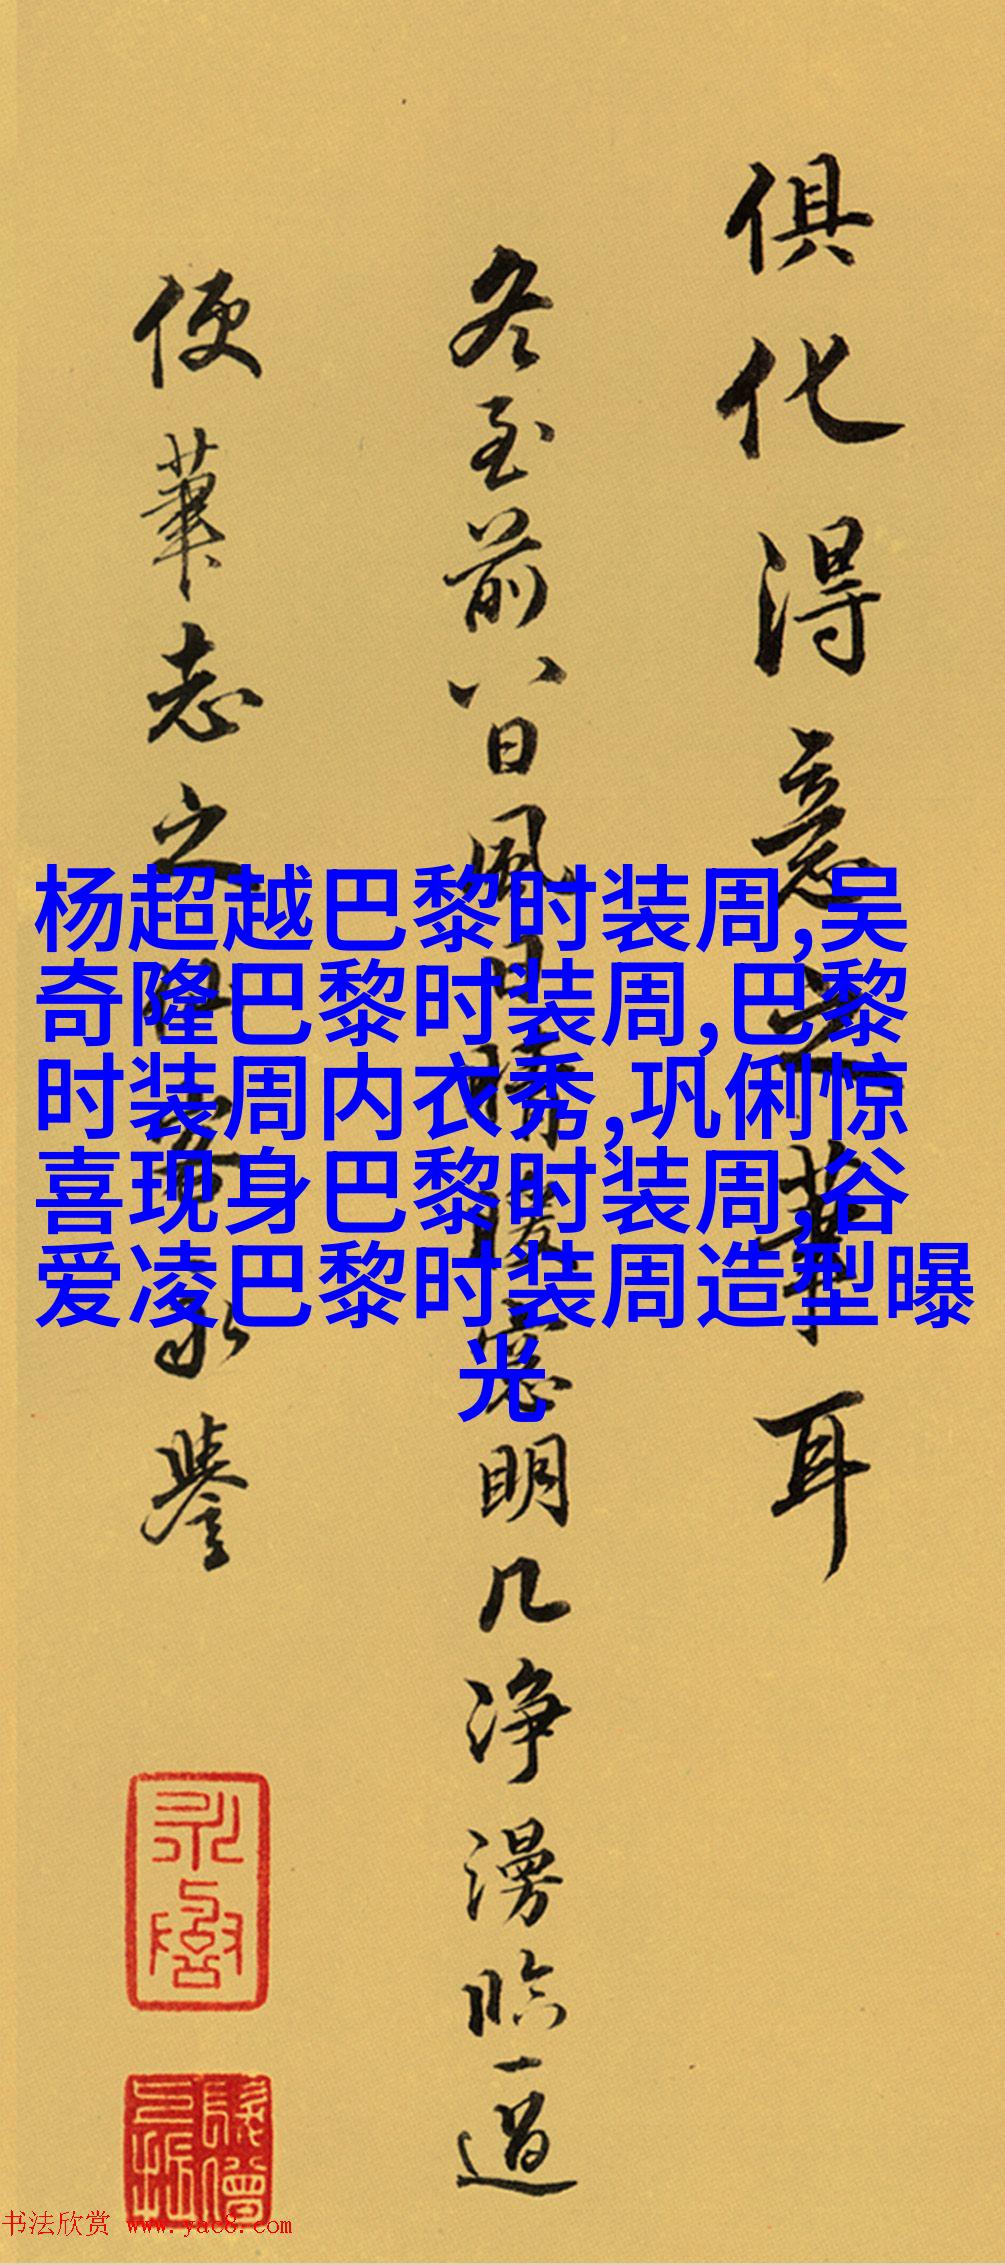 杨超越巴黎时装周,吴
奇隆巴黎时装周,巴黎
时装周内衣秀,巩俐惊
喜现身巴黎时装周,谷
爱凌巴黎时装周造型曝
光
俱化得意之筆耳
冬至前八日風日晴暖窓明几浄漫臨一過
便筆志之
永譽
书法欣赏 www.yac8.com